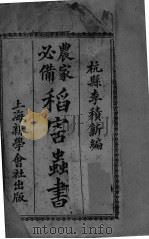 杭縣李積新編
農家必備
稻害蟲書
上海新學會社出版
www.mtoou.info